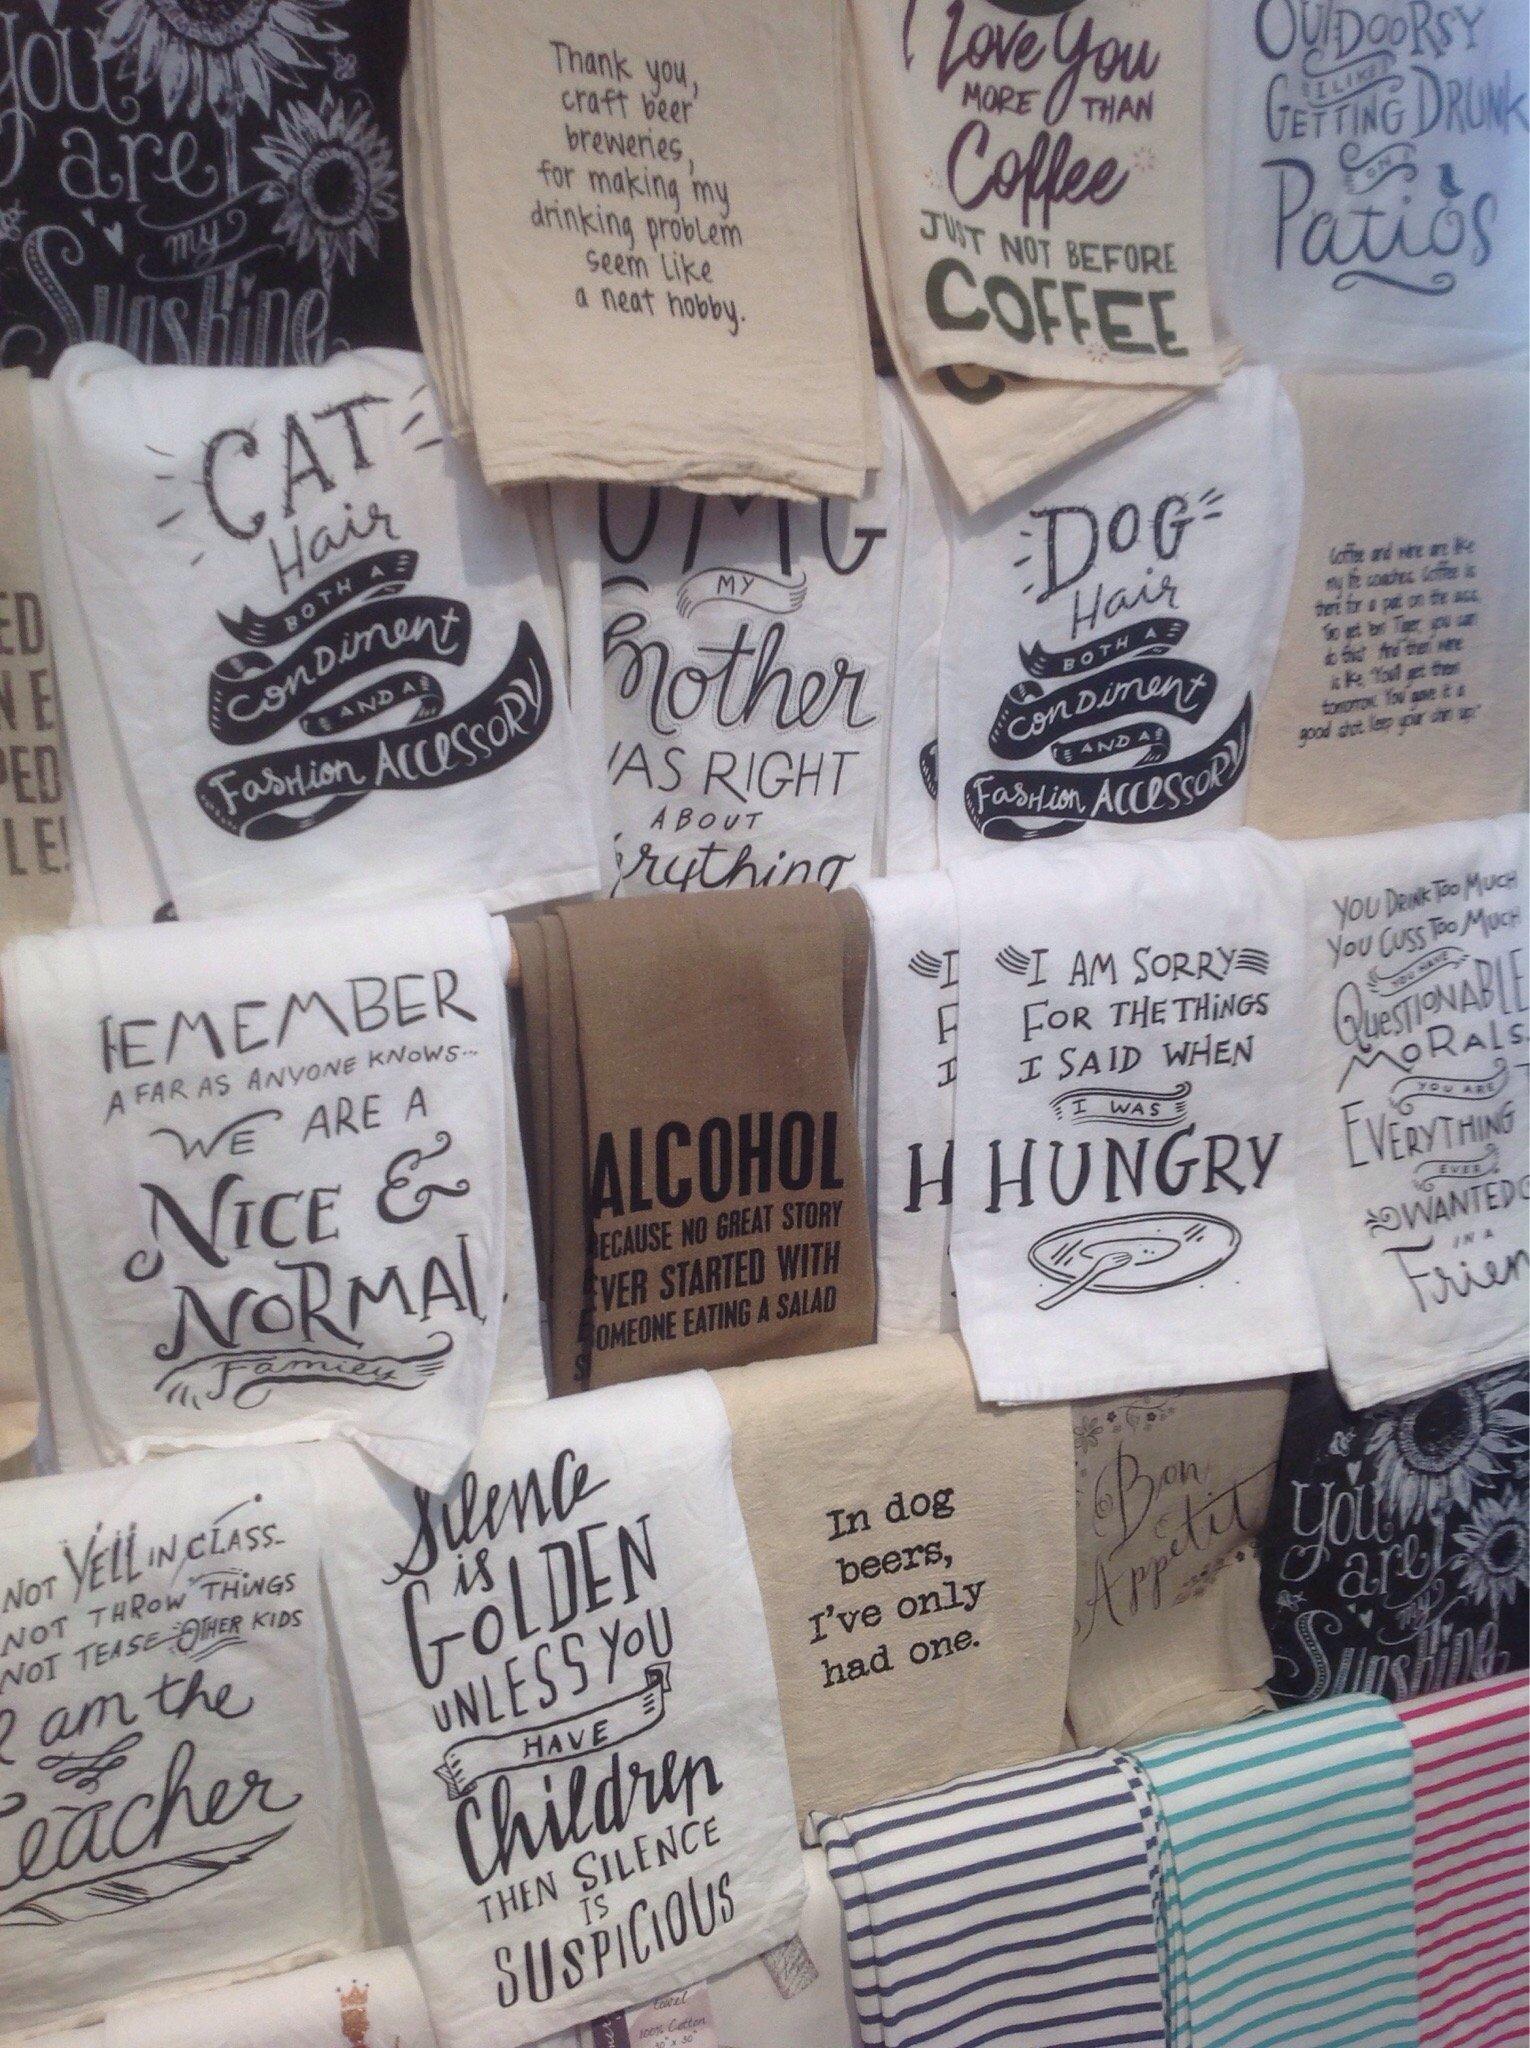 you
are
my
Sunshine
Thank you,
craft beer
breweries,
for making my
drinking problem
seem like
a neat hobby.
I Love you
MORE THAN
Coffee
JUST NOT BEFORE
COFFEE
OUTDOORSY
I LIKE
GETTING DRUNK
ON
Patios
CAT
Hair
BOTH A
Condiment
AND A
Fashion Accessory
OMG
MY
Mother
WAS RIGHT
ABOUT
DOG
Hair
BOTH A
Condiment
AND A
Fashion Accessory
Coffee and wine are like
my life coaches. Coffee is
there for a pat on the ass,
"Go get 'em Tiger, you can
do this!" And then wine
is like, "You'll get them
tomorrow. You gave it a
good shot, keep your chin up."
REMEMBER
A FAR AS ANYONE KNOWS...
WE ARE A
NICE &
NORMAL
Family
ALCOHOL
BECAUSE NO GREAT STORY
EVER STARTED WITH
SOMEONE EATING A SALAD
I AM SORRY
FOR THE THINGS
I SAID WHEN
I WAS
HUNGRY
YOU DRINK TOO MUCH
YOU CUSS TOO MUCH
YOU HAVE
QUESTIONABLE
MORALS.
YOU ARE
EVERYTHING
EVER
WANTED
IN A
Frien
NOT YELL IN CLASS
NOT THROW THINGS
NOT TEASE OTHER KIDS
I am the
Teacher
Silence
is
GOLDEN
UNLESS YOU
HAVE
Children
THEN SILENCE
IS
SUSPICIOUS
In dog
beers,
I've only
had one.
Bon
Appetit
you
are
my
Sunshine
towel
100% Cotton
30" x 30"